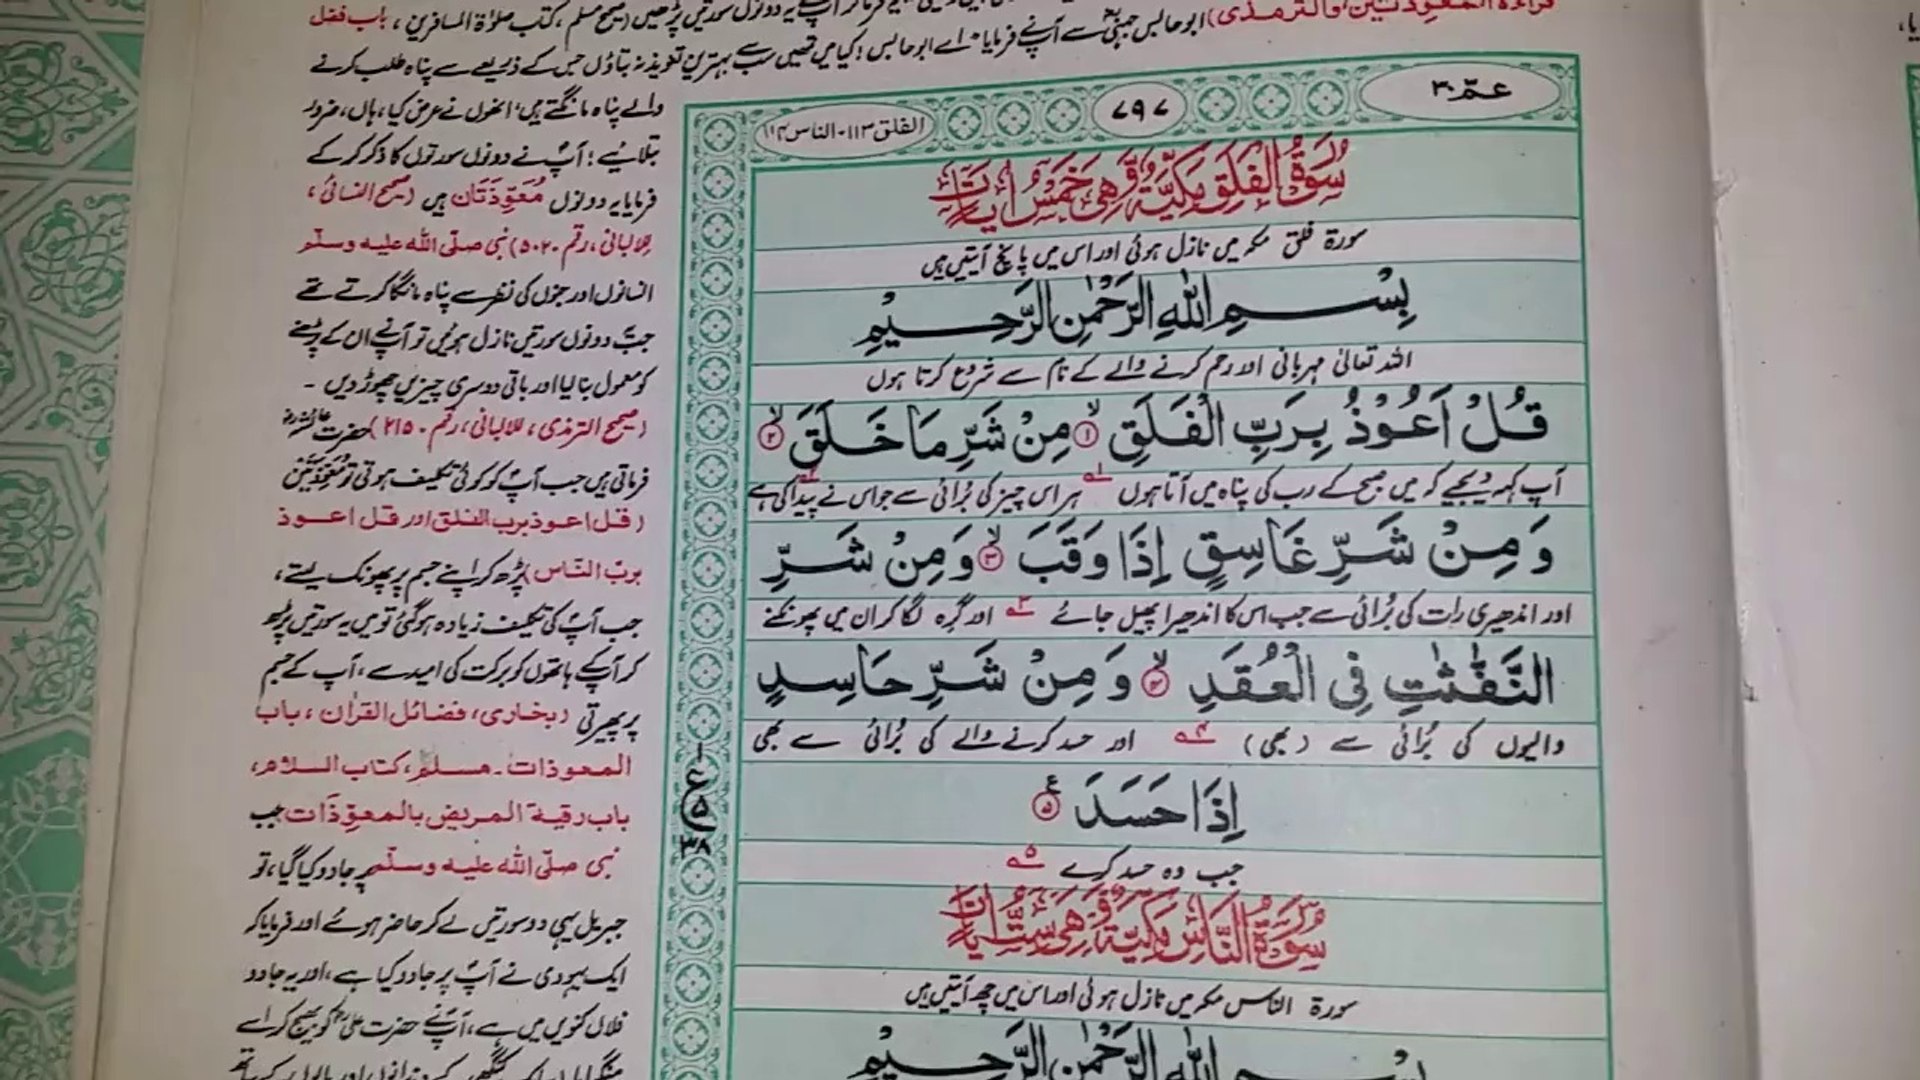 قراءة المعوذتین، والترمذی) ابو حابس جہنیؓ سے آپؐ نے فرمایا "اے ابو حابس! کیا میں تمھیں سب سے بہترین تعویذ نہ بتاؤں جس کے ذریعے سے پناہ طلب کرنے
والے پناہ مانگتے ہیں" انھوں نے عرض کیا، ہاں، ضرور
بتلائیے! آپؐ نے دونوں سورتوں کا ذکر کر کے
فرمایا یہ دونوں مُعَوِّذَتَان ہیں (صحیح النسائی،
للالبانی، رقم ۵۰۲۰) نبی صلّی اللہ علیہ وسلّم
انسانوں اور جنوں کی نظر سے پناہ مانگا کرتے تھے
جب یہ دونوں سورتیں نازل ہوئیں تو آپؐ نے ان کے پڑھنے
کو معمول بنا لیا اور باقی دوسری چیزیں چھوڑ دیں ۔
(صحیح الترمذی، للالبانی، رقم ۲۱۵۰) حضرت عائشہؓ
فرماتی ہیں جب آپؐ کو کوئی تکلیف ہوتی تو مُعَوِّذَتَیْن
(قل اعوذ برب الفلق اور قل اعوذ
برب النّاس) پڑھ کر اپنے جسم پر پھونک لیتے،
جب آپؐ کی تکلیف زیادہ ہو گئی تو میں یہ سورتیں پڑھ
کر آپؐ کے ہاتھوں کو برکت کی امید سے، آپ کے جسم
پر پھیرتی (بخاری، فضائل القرآن، باب
المعوذات ۔ مسلم، کتاب السلام،
باب رقیة المریض بالمعوّذات) جب
نبی صلّی اللہ علیہ وسلّم پر جادو کیا گیا، تو
جبریل یہی دو سورتیں لے کر حاضر ہوئے اور فرمایا کہ
ایک یہودی نے آپؐ پر جادو کیا ہے، اور یہ جادو
فلاں کنویں میں ہے، آپؐ نے حضرت علیؓ کو بھیج کر اسے
عمّ ۳۰
۷۹۷
الفلق ۱۱۳ - الناس ۱۱۴
سُوْرَةُ الْفَلَقِ مَكِّيَّةٌ وَّهِيَ خَمْسُ اٰيَاتٍ
سورۃ فلق مکہ میں نازل ہوئی اور اس میں پانچ آیتیں ہیں
بِسْمِ اللّٰهِ الرَّحْمٰنِ الرَّحِيْمِ
اللہ تعالیٰ مہربانی اور رحم کرنے والے کے نام سے شروع کرتا ہوں
قُلْ اَعُوْذُ بِرَبِّ الْفَلَقِ ۙ۱ مِنْ شَرِّ مَا خَلَقَ ۙ۲
آپ کہہ دیجیے کہ میں صبح کے رب کی پناہ میں آتا ہوں ۱؎ ہر اس چیز کی بُرائی سے جو اس نے پیدا کی ہے ۲؎
وَ مِنْ شَرِّ غَاسِقٍ اِذَا وَقَبَ ۙ۳ وَ مِنْ شَرِّ
اور اندھیری رات کی بُرائی سے جب اس کا اندھیرا پھیل جائے ۳؎ اور گرہ لگا کر ان میں پھونکنے
النَّفّٰثٰتِ فِي الْعُقَدِ ۙ۴ وَ مِنْ شَرِّ حَاسِدٍ
والیوں کی بُرائی سے (بھی) ۴؎ اور حسد کرنے والے کی بُرائی سے بھی
اِذَا حَسَدَ ۵ ع
جب وہ حسد کرے ۵؎
۱
ع
۵
۳۸
سُوْرَةُ النَّاسِ مَكِّيَّةٌ وَّهِيَ سِتُّ اٰيَاتٍ
سورۃ الناس مکہ میں نازل ہوئی اور اس میں چھ آیتیں ہیں
بِسْمِ اللّٰهِ الرَّحْمٰنِ الرَّحِيْمِ